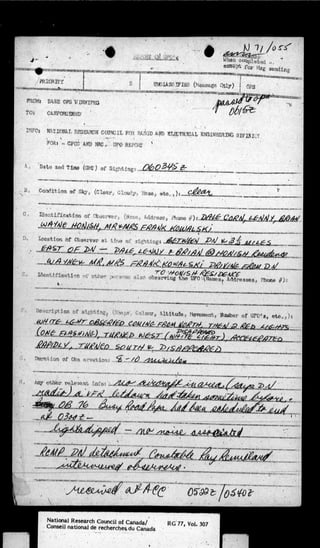 N 71/055
When completed -
except for Msg sending
PRIORITY
UNCLASSIFIED (Message Only)
OPS
passed to op
FROM: BASE OPS WINNIPEG
TO: CANFORCEHED
INFO: NATIONAL RESEARCH COUNCIL FOR RADIO AND ELECTRICAL ENGINEERING DIVISION
FOR: - CFOC AND NRC. UFO REPORT
A. Date and Time (GMT) of Sighting: 060345Z
B. Condition of Sky, (Clear, Cloudy, Haze, etc.,): clear
C. Identification of Observer, (Name, Address, Phone #): DALE CORN, LENNY, BRIAN
WAYNE HONISH, MR & MRS FRANK KOWALSKI
D. Location of Observer at time of sighting: BETWEEN DN & 3½ MILES
EAST OF DN — DALE, LENNY & BRIAN @ HONISH Residence
WAYNE & MR, MRS FRANK KOWALSKI DRIVING FROM DN
TO HONISH RESIDENCE
E. Identification of other persons also observing the UFO (Names, Addresses, Phone #):
F. Description of sighting, (Shape, Colour, Altitude, Movement, Number of UFO's, etc.,):
WHITE LIGHT OBSERVED COMING FROM NORTH, THEN 2 RED LIGHTS
(ONE FLASHING), TURNED WEST (WHITE LIGHT DISAPPEARED) ACCELERATED
RAPIDLY, TURNED SOUTH & DISAPPEARED
G. Duration of the ervation: 8-10 minutes
H. Any other relevant info: no aircraft in area (says DN
radio) a IFR letdown had taken sometime before.
OB 76 Busy Road Papa had been scheduled to end
at 03++ -
lights dipped - no noise associated
RCMP DN detachment Constable Ray
interviewed observers.
received at ACC 0522Z/0540Z
National Research Council of Canada/
Conseil national de recherches du Canada
RG 77, Vol. 307